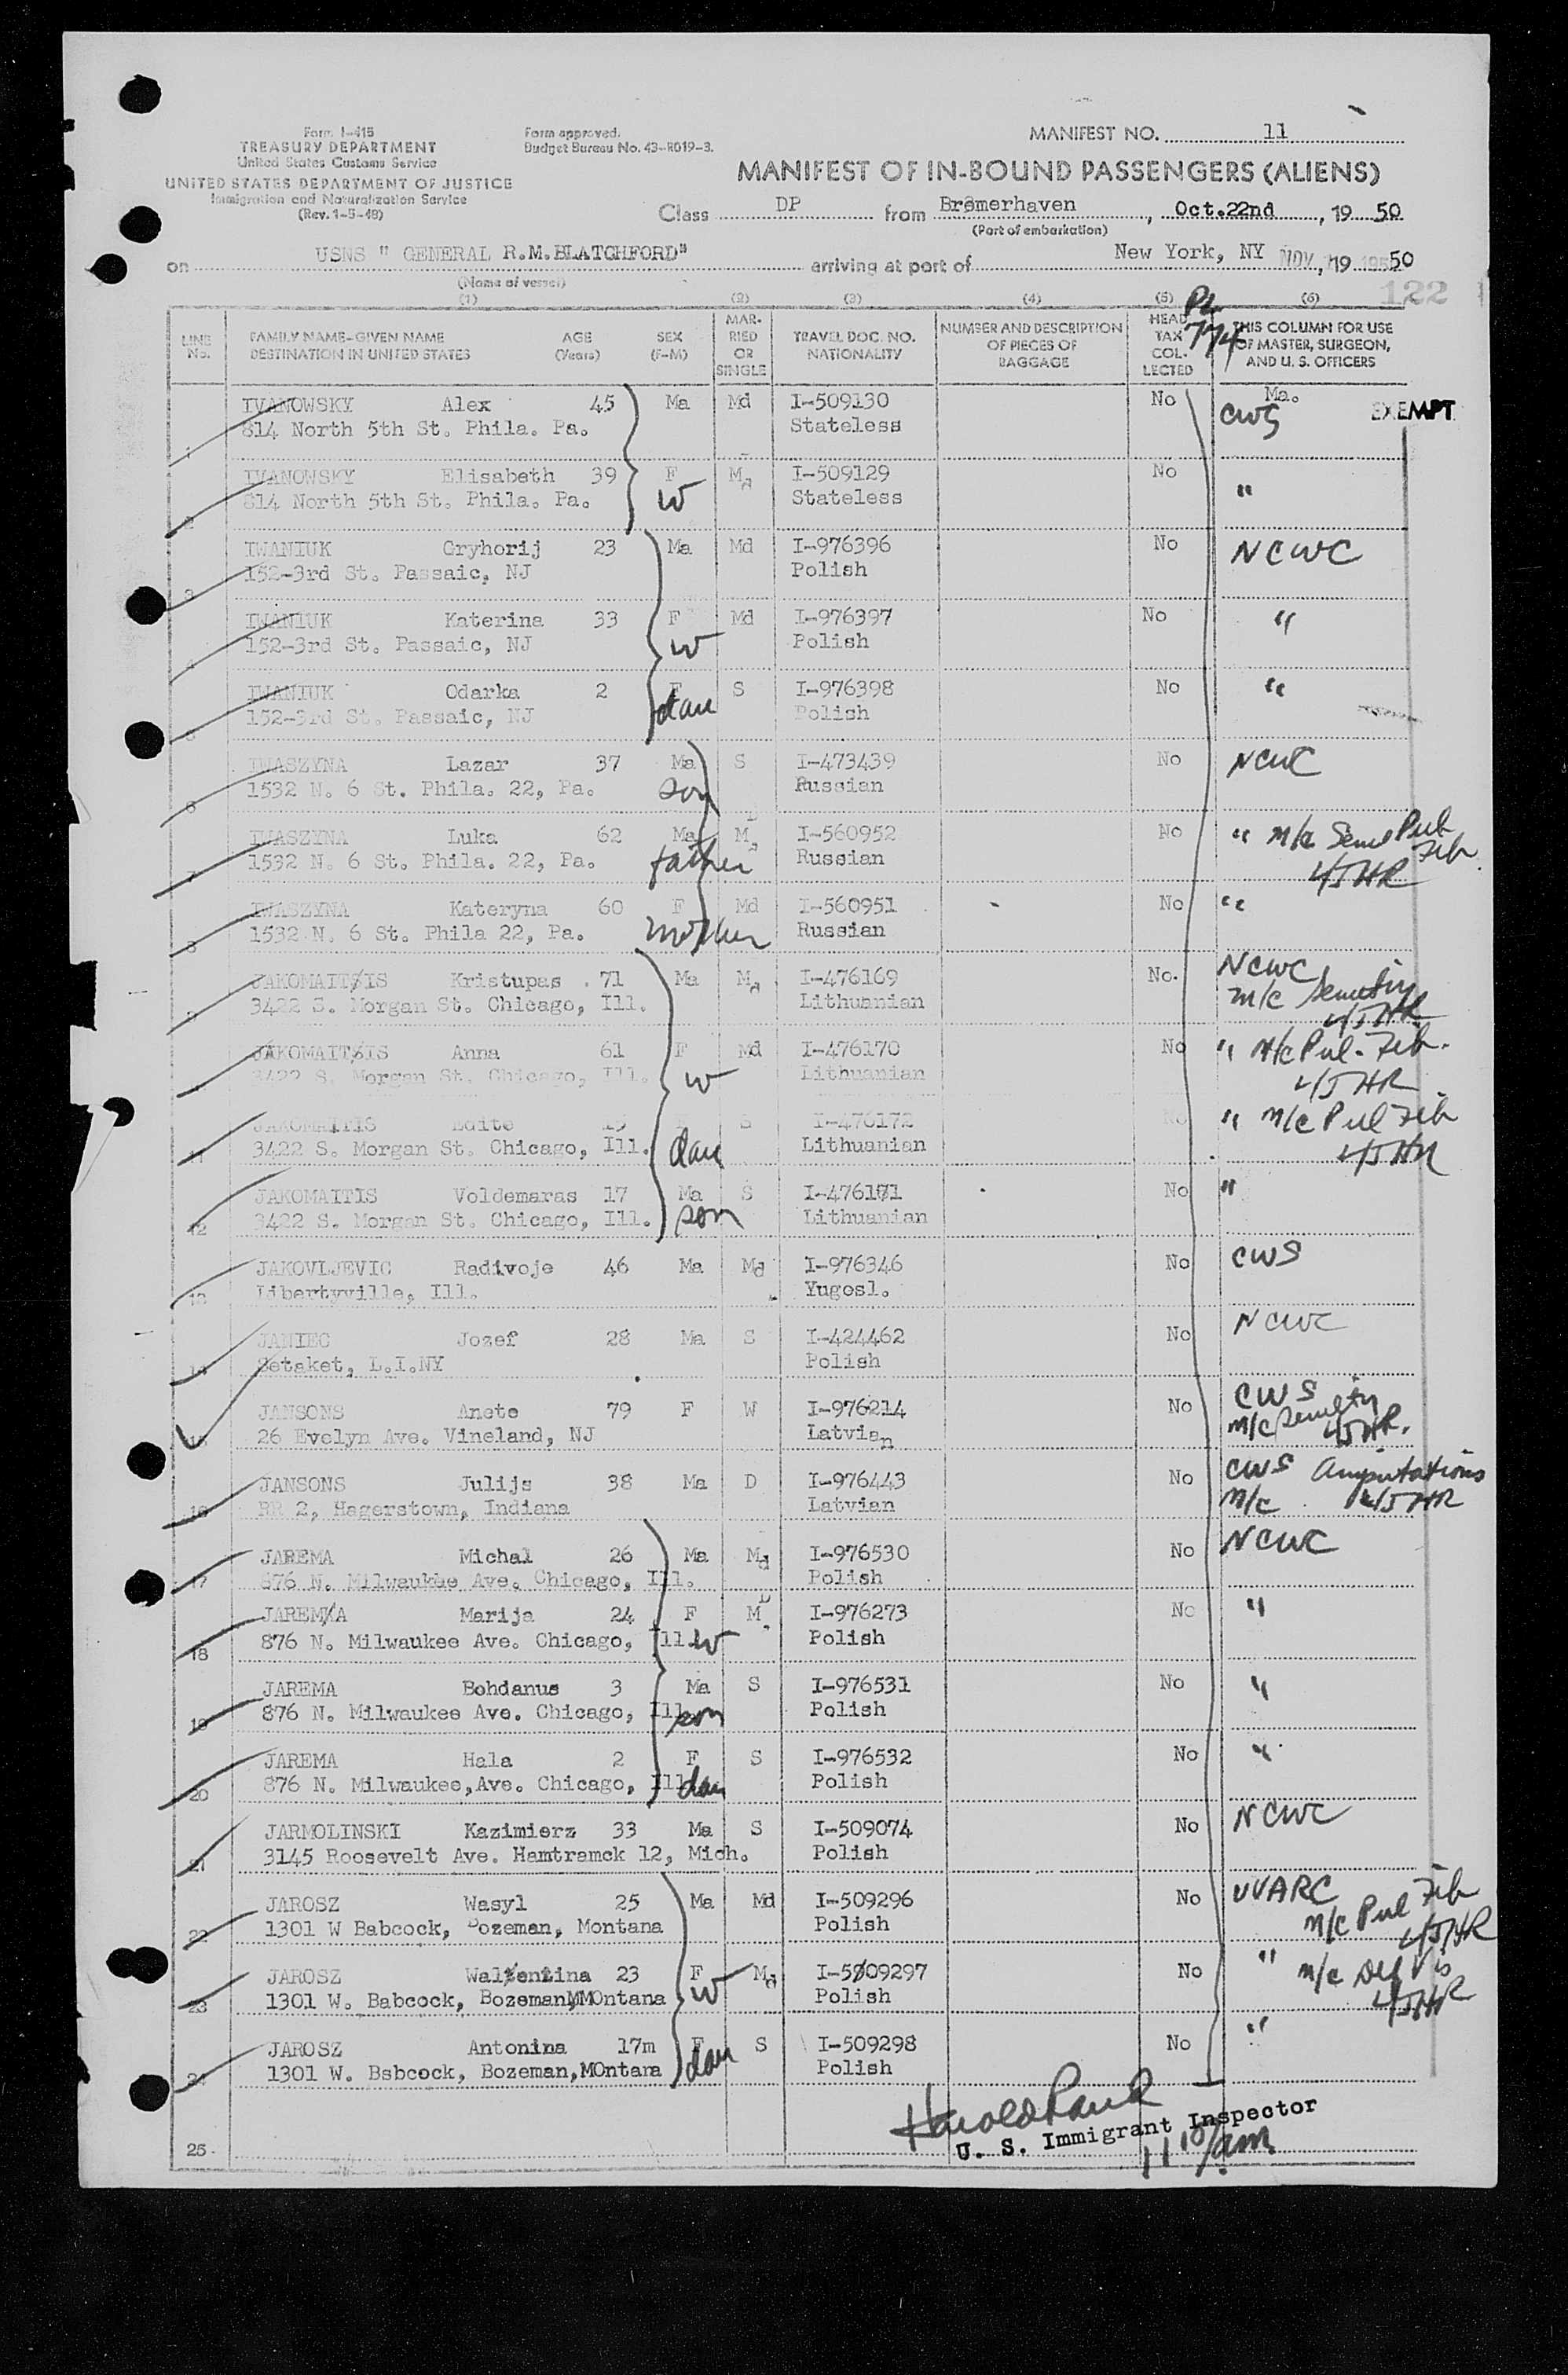 Form I-415
TREASURY DEPARTMENT
United States Customs Service
UNITED STATES DEPARTMENT OF JUSTICE
Immigration and Naturalization Service
(Rev. 1-5-48)
Form approved.
Budget Bureau No. 43-R019-3.
MANIFEST NO. 11
MANIFEST OF IN-BOUND PASSENGERS (ALIENS)
Class DP from Bremerhaven, Oct.22nd, 19 50
(Port of embarkation)
on USNS " GENERAL R.M.BLATCHFORD" arriving at port of New York, NY NOV , 19 50
(Name of vessel)
122
(1) (2) (3) (4) (5) (6)
PL 774
LINE No. FAMILY NAME-GIVEN NAME DESTINATION IN UNITED STATES AGE (Years) SEX (F-M) MARRIED OR SINGLE TRAVEL DOC. NO. NATIONALITY NUMBER AND DESCRIPTION OF PIECES OF BAGGAGE HEAD TAX COLLECTED THIS COLUMN FOR USE OF MASTER, SURGEON, AND U. S. OFFICERS
IVANOWSKY Alex 45 Ma Md I-509130 No Ma. CWS EXEMPT
1 814 North 5th St. Phila. Pa. Stateless
IVANOWSKY Elisabeth 39 F Md I-509129 No "
2 814 North 5th St. Phila. Pa. W Stateless
IWANIUK Gryhorij 23 Ma Md I-976396 No NCWC
3 152-3rd St. Passaic, NJ Polish
IWANIUK Katerina 33 F Md I-976397 No "
4 152-3rd St. Passaic, NJ W Polish
IWANIUK Odarka 2 F S I-976398 No "
5 152-3rd St. Passaic, NJ dau Polish
IWASZYNA Lazar 37 Ma S I-473439 No NCWC
6 1532 N. 6 St. Phila. 22, Pa. son Russian
IWASZYNA Luka 62 Ma MD I-560952 No " m/c Senil Pul Fib
7 1532 N. 6 St. Phila. 22, Pa. father Russian 45 HR
IWASZYNA Kateryna 60 F Md I-560951 No "
8 1532 N. 6 St. Phila 22, Pa. mother Russian
JAKOMAITSIS Kristupas 71 Ma Md I-476169 No. NCWC
9 3422 S. Morgan St. Chicago, Ill. Lithuanian m/c Senility 45 HR
JAKOMAITSIS Anna 61 F Md I-476170 No " m/c Pul. Fib.
3422 S. Morgan St. Chicago, Ill. W Lithuanian 45 HR
JAKOMAITIS Edite S I-476172 No " m/c Pul Fib
11 3422 S. Morgan St. Chicago, Ill. dau Lithuanian 45 HR
JAKOMAITIS Voldemaras 17 Ma S I-476171 No "
12 3422 S. Morgan St. Chicago, Ill. son Lithuanian
JAKOVLJEVIC Radivoje 46 Ma Md I-976346 No CWS
13 Libertyville, Ill. Yugosl.
JANIEC Jozef 28 Ma S I-424462 No NCWC
14 Setaket, L.I.NY Polish
JANSONS Anete 79 F W I-976214 No CWS
15 26 Evelyn Ave. Vineland, NJ Latvian m/c Senility 45 HR.
JANSONS Julijs 38 Ma D I-976443 No CWS Amputations
16 RR 2, Hagerstown, Indiana Latvian m/c 45 HR
JAREMA Michal 26 Ma Md I-976530 No NCWC
17 876 N. Milwaukee Ave. Chicago, Ill. Polish
JAREMKA Marija 24 F MD I-976273 No "
18 876 N. Milwaukee Ave. Chicago, Ill. W Polish
JAREMA Bohdanus 3 Ma S I-976531 No "
19 876 N. Milwaukee Ave. Chicago, Ill. son Polish
JAREMA Hala 2 F S I-976532 No "
20 876 N. Milwaukee,Ave. Chicago, Ill. dau Polish
JARMOLINSKI Kazimierz 33 Ma S I-509074 No NCWC
21 3145 Roosevelt Ave. Hamtramck 12, Mich. Polish
JAROSZ Wasyl 25 Ma Md I-509296 No UUARC
22 1301 W Babcock, Bozeman, Montana Polish m/c Pul Fib 45 HR
JAROSZ Walentina 23 F Md I-509297 No " m/c Def Vis
23 1301 W. Babcock, Bozeman, MOntana W Polish 45 HR
JAROSZ Antonina 17m F S I-509298 No "
24 1301 W. Babcock, Bozeman,MOntana dau Polish
Harold
U. S. Immigrant Inspector
25. 11 10/am